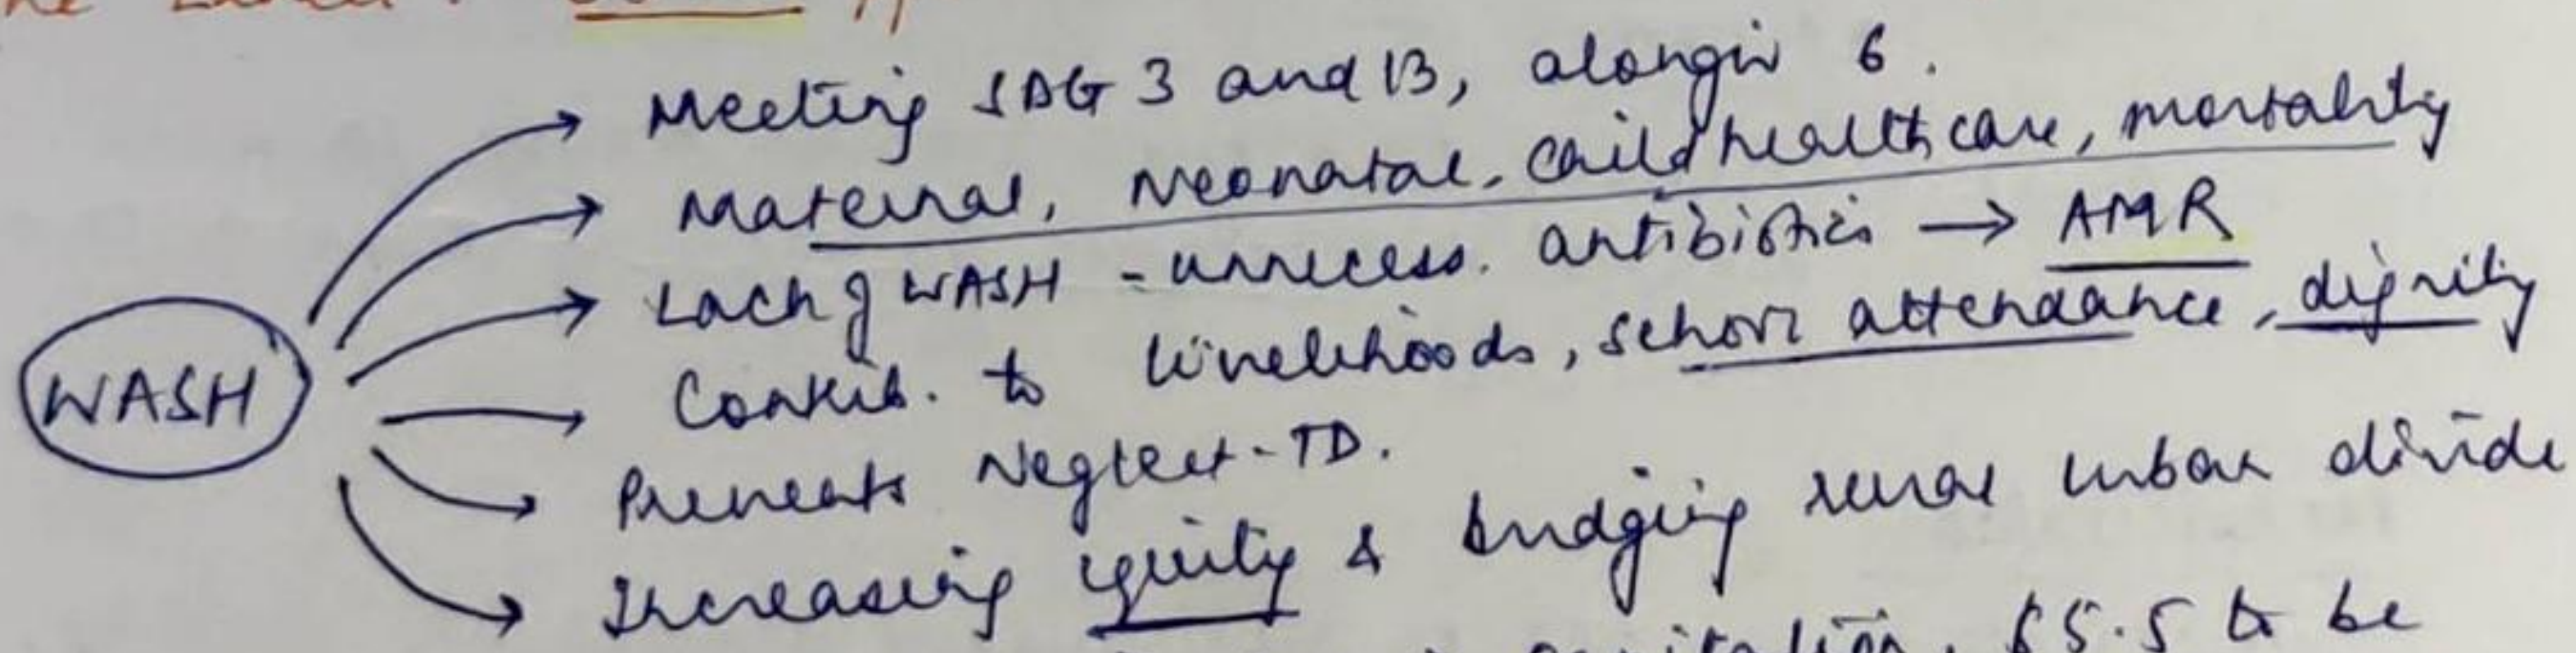 Meeting SDG 3 and 13, alongw 6.
Maternal, Neonatal, Child healthcare, mortality
Lack of WASH - unnecess. antibiotics → AMR
WASH
Contrib. to livelihoods, school attendance, dignity
Prevents Neglect-TD.
Increasing equity & bridging rural urban divide
sanitation, $5.5 to be